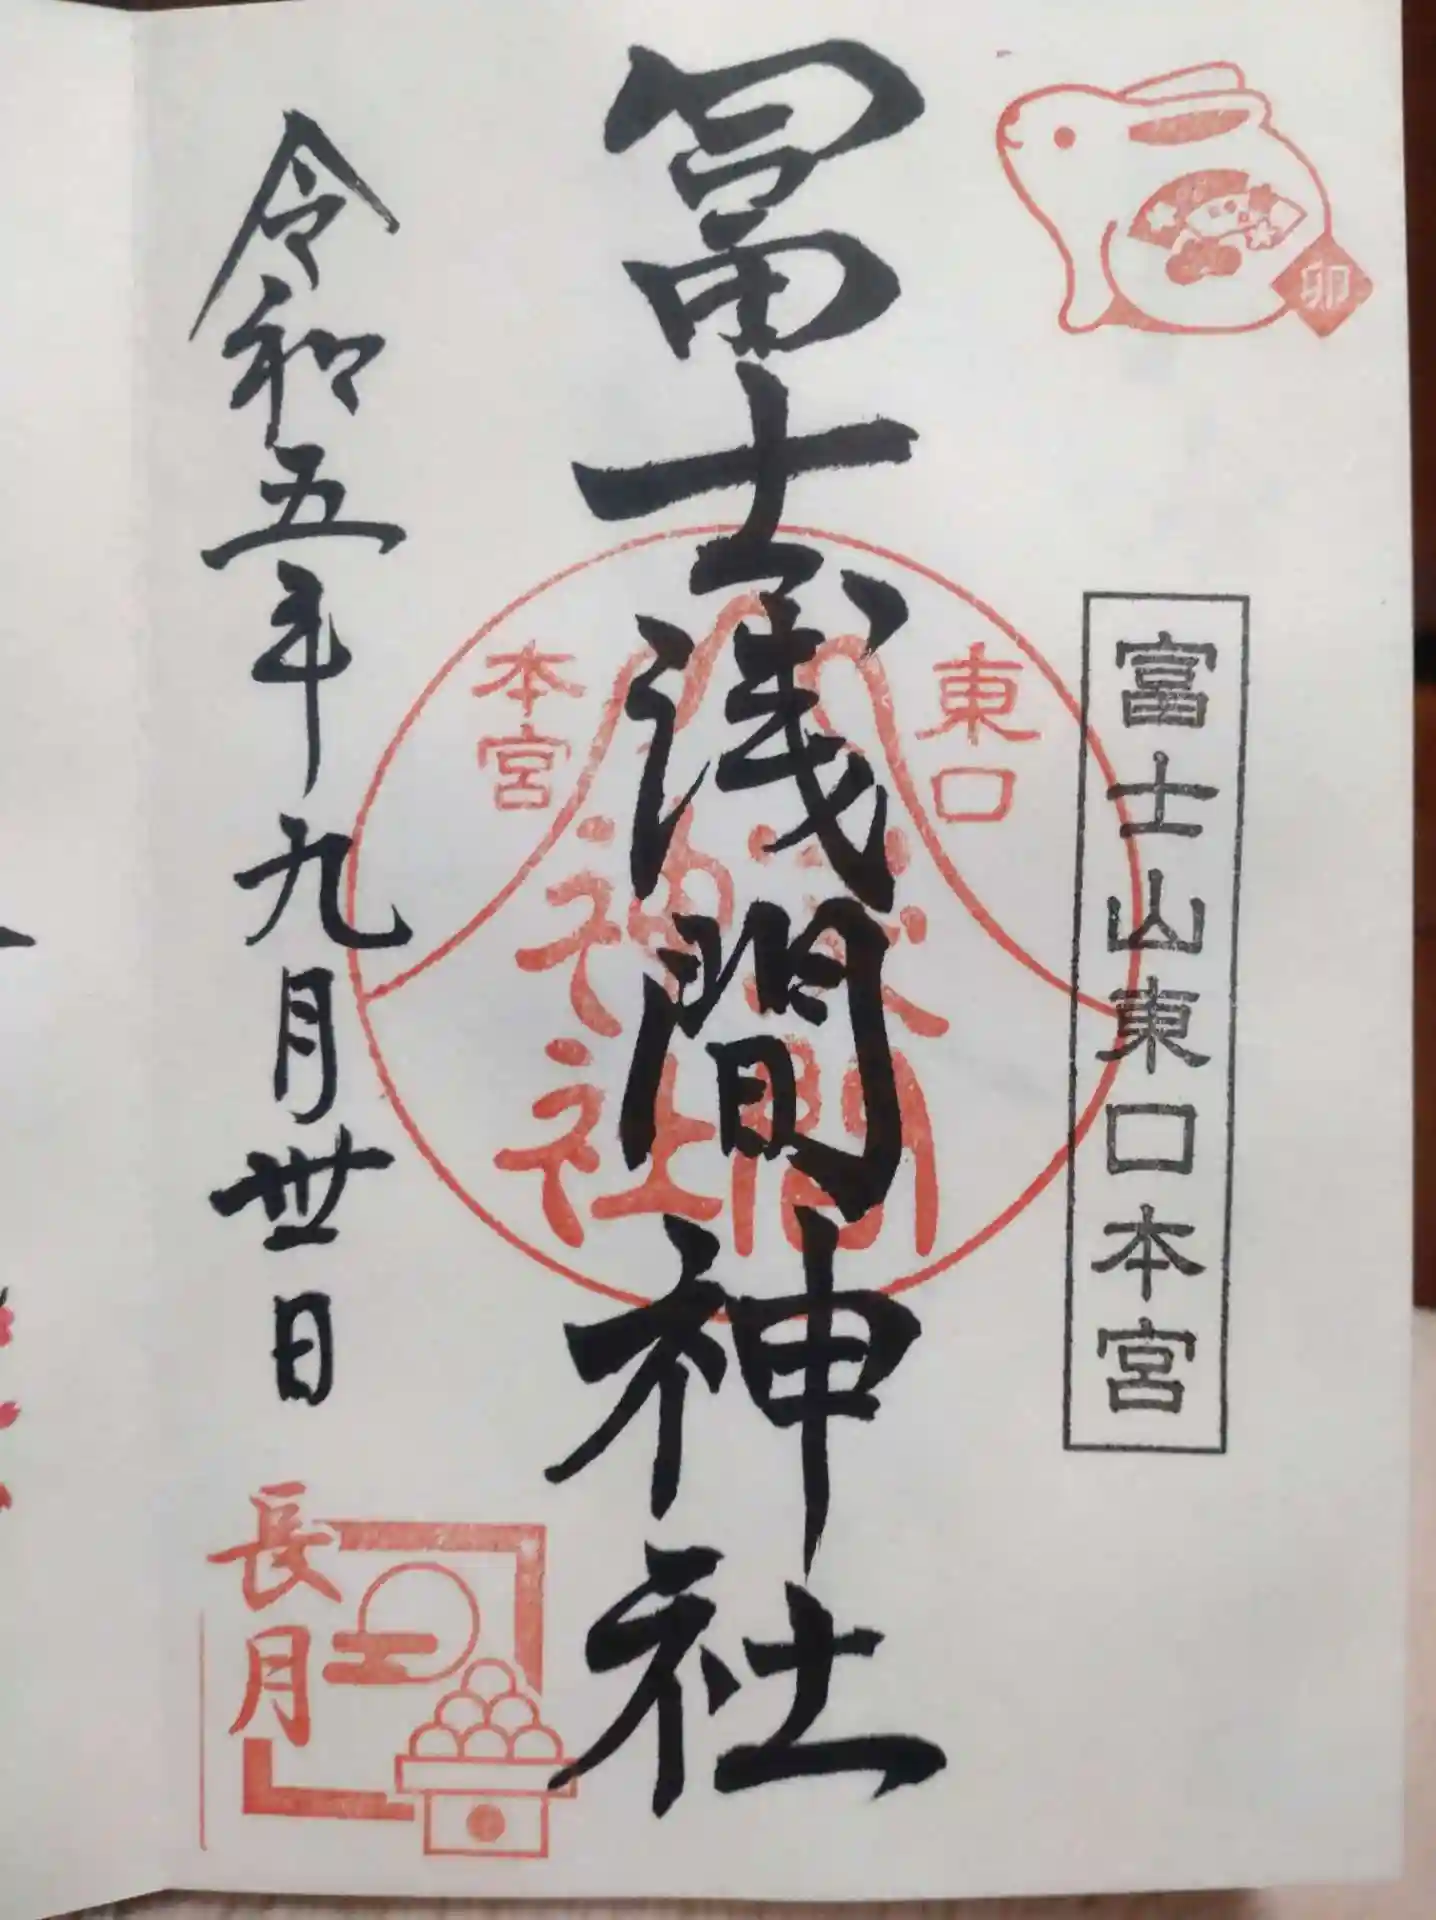 卯
富士山東口本宮
冨士浅間神社
東口
本宮
浅間
神社
令和五年九月卅日
長月